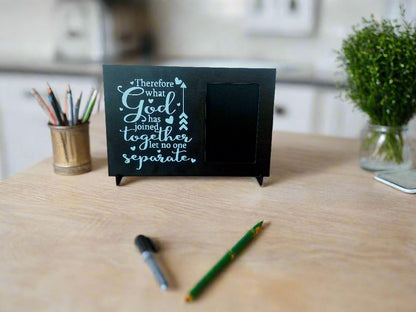 Therefore
what
God
has
joined
together
let no one
separate